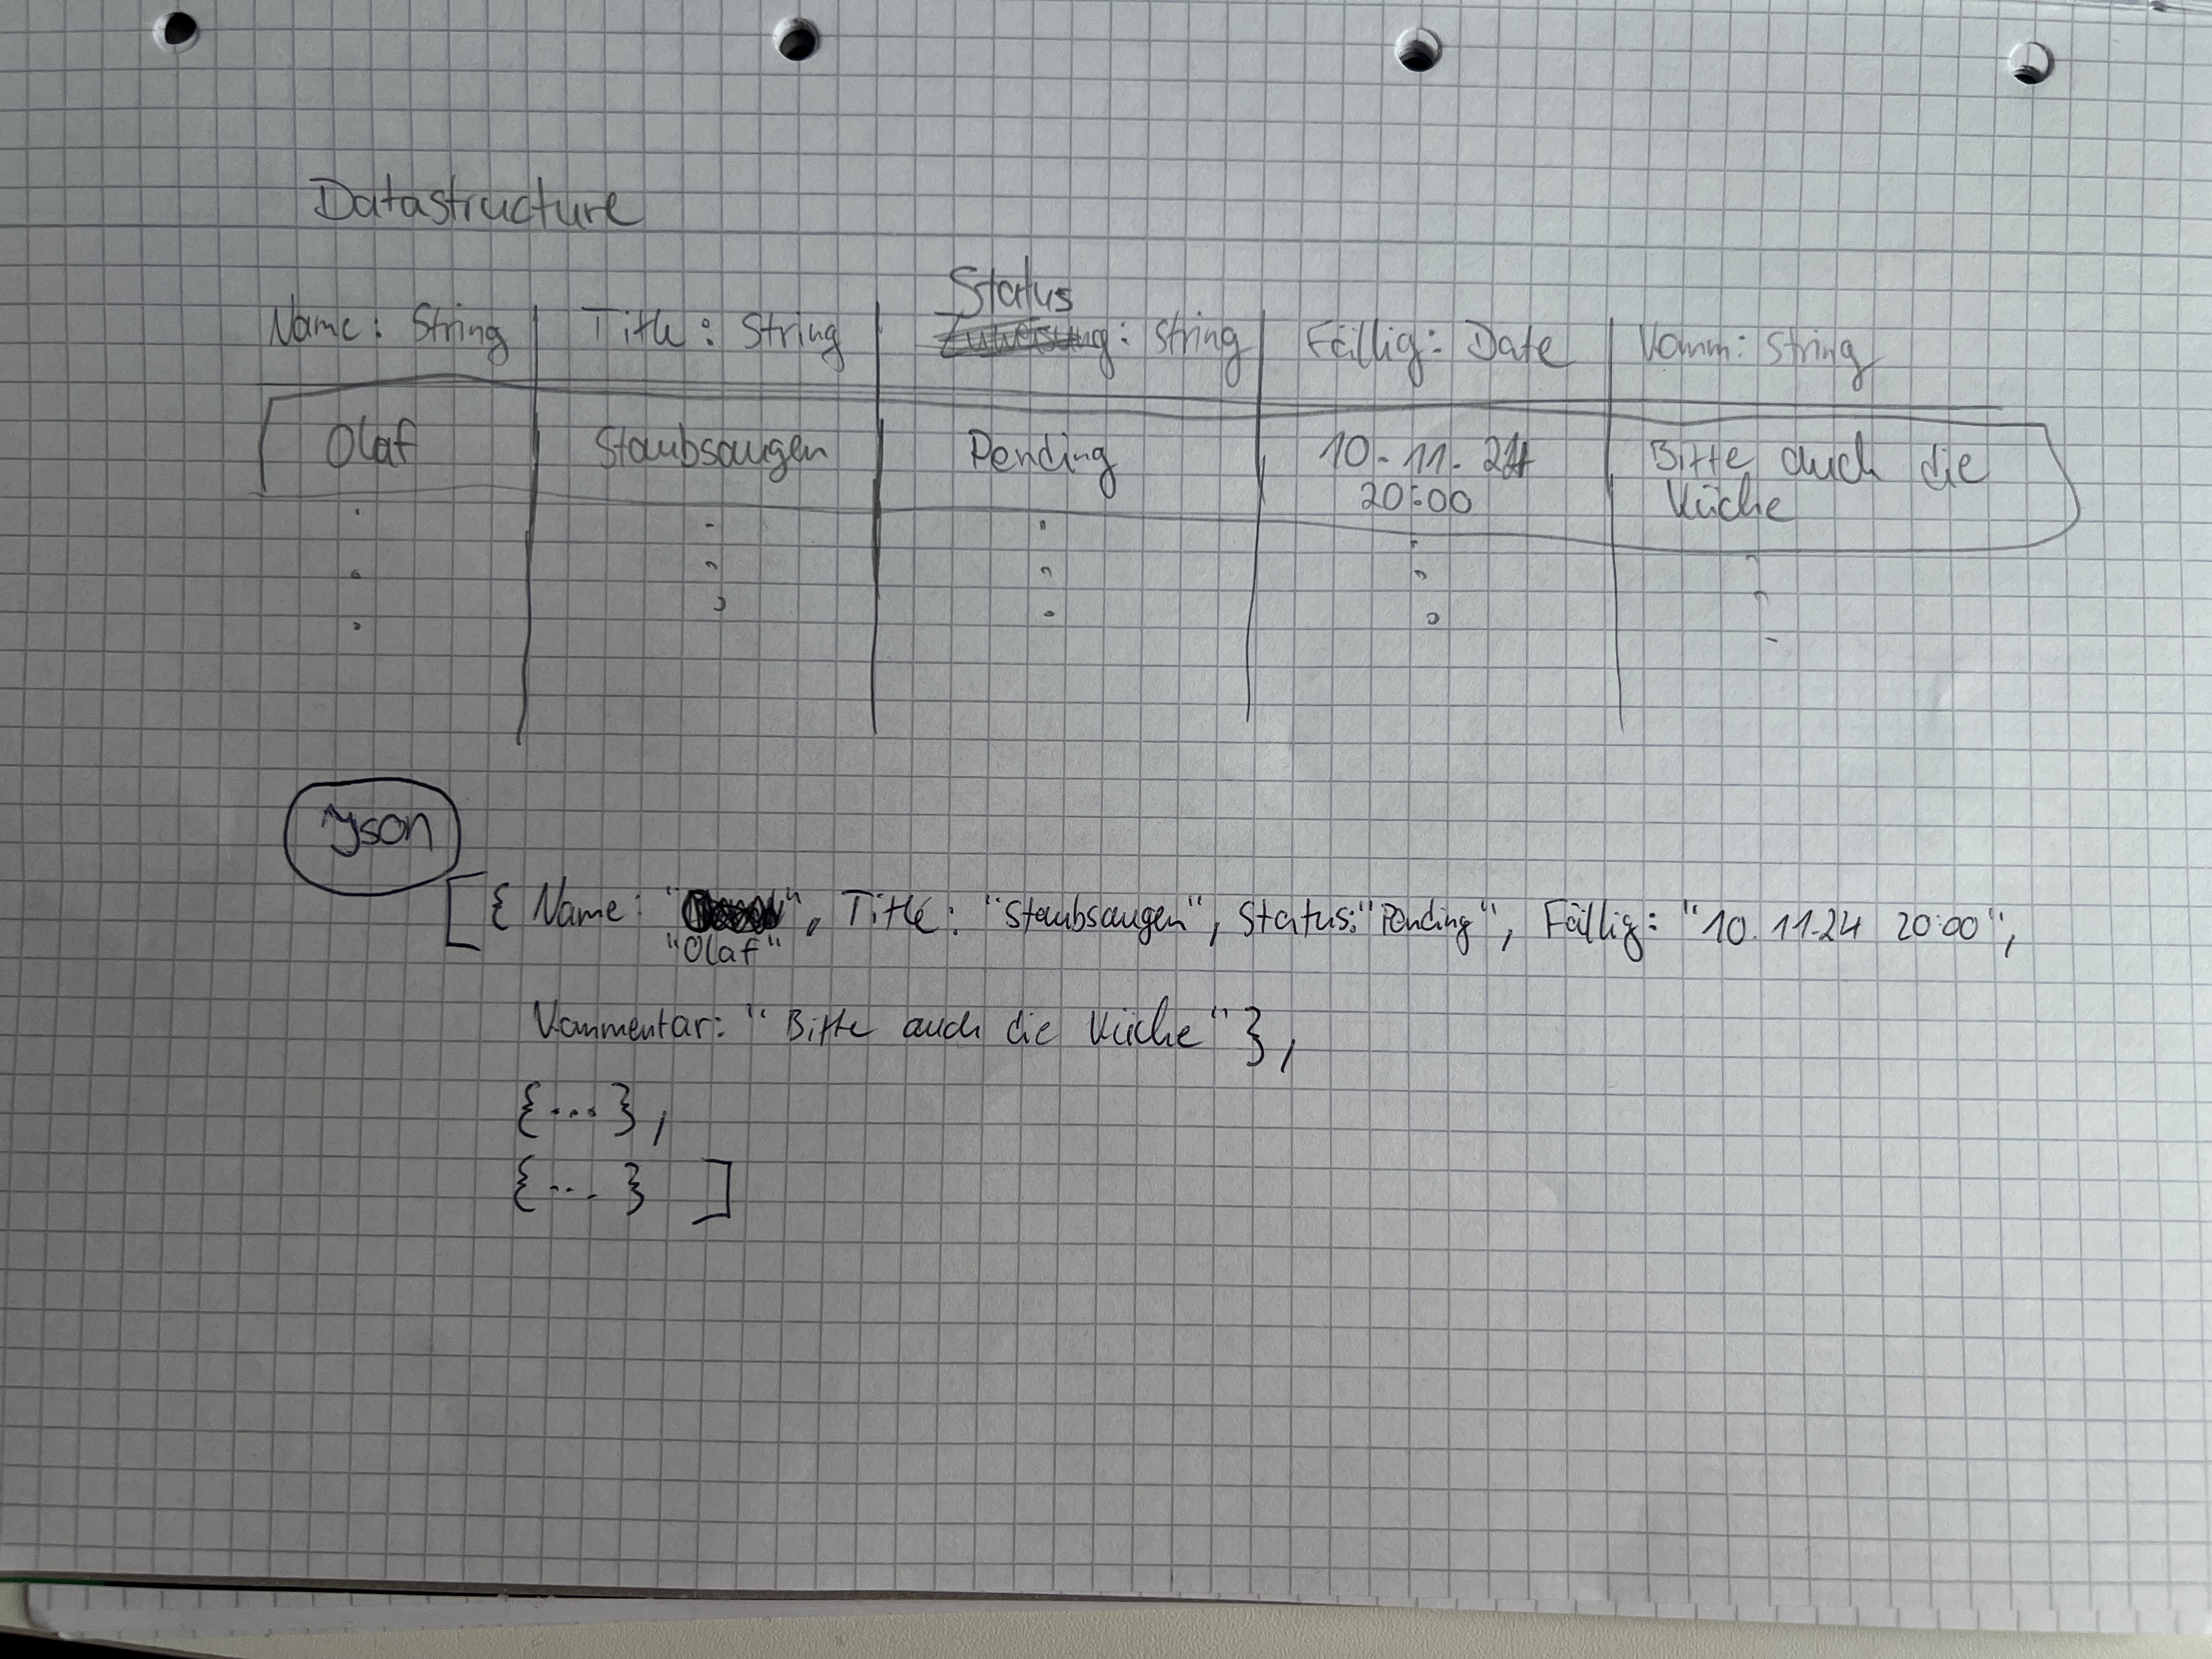 Datastructure
Status
Name: String Title: String : String Fällig: Date Komm: String
Olaf Staubsaugen Pending 10-11-24 Bitte auch die
20:00 Küche
Json
[{ Name: " ", Title: "Staubsaugen", Status: "Pending", Fällig: "10.11.24 20:00",
"Olaf"
Kommentar: "Bitte auch die Küche"},
{...},
{...}]